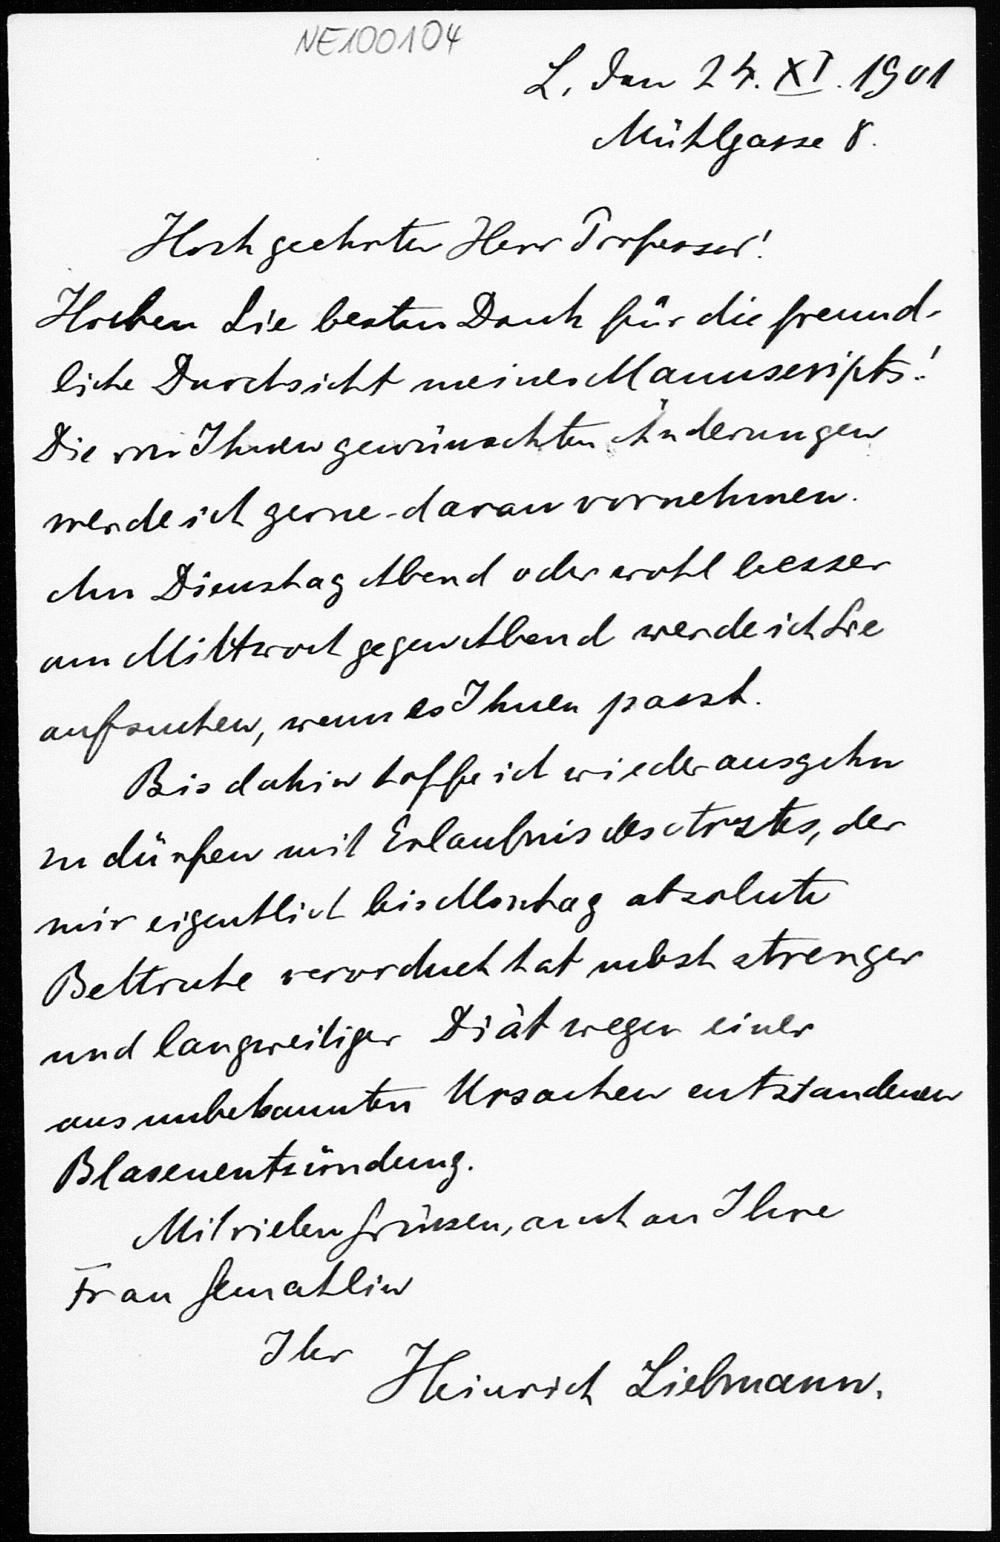 NE100104
L, den 24. XI. 1901
Mühlgasse 8.
Hochgeehrter Herr Professor!
Haben Sie besten Dank für die freund-
liche Durchsicht meines Manuscripts!
Die von Ihnen gewünschten Änderungen
werde ich gerne daran vornehmen.
Am Dienstag Abend oder wohl besser
am Mittwoch gegen Abend werde ich Sie
aufsuchen, wenn es Ihnen passt.
Bis dahin hoffe ich wieder ausgehn
zu dürfen mit Erlaubnis des Arztes, der
mir eigentlich bis Montag absolute
Bettruhe verordnet hat nebst strenger
und langweiliger Diät wegen einer
aus unbekannten Ursachen entstandenen
Blasenentzündung.
Mit vielen Grüssen, auch an Ihre
Frau Gemahlin
Ihr
Heinrich Liebmann.